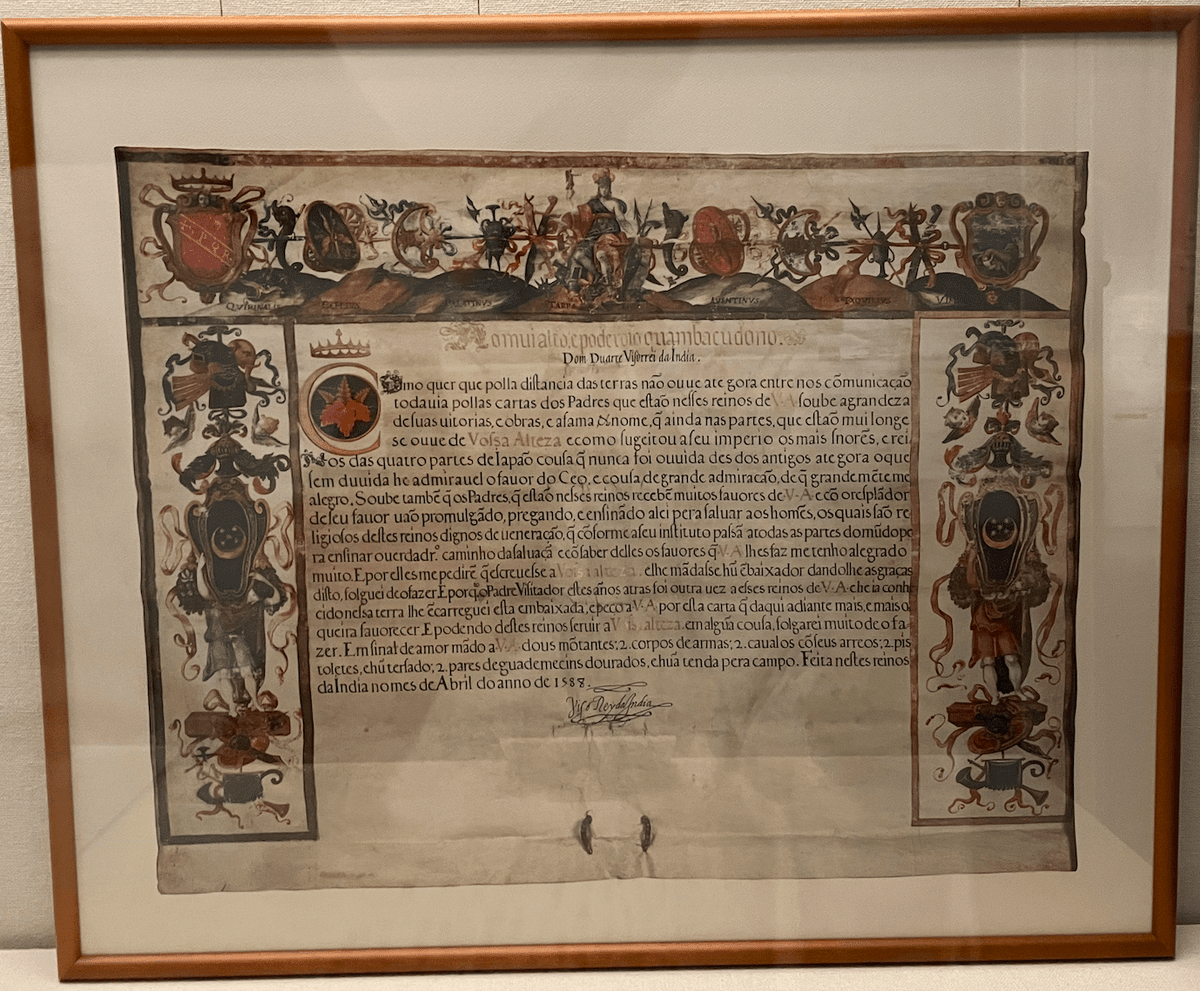 S P Q R
CAELIVS
AVENTINVS
Ao mui alto, e poderoso quambacudono.
Dom Duarte Visorrei da India.
Como quer que polla distancia das terras não ouue ate gora entre nos cõmunicação
todauia pollas cartas dos Padres que estaõ nesses reinos de V·A soube a grandeza
de suas uitorias, e obras, e a fama & nome, q̃ ainda nas partes, que estaõ mui longe
se ouue de Vossa Alteza e como sugeitou a seu imperio os mais sñores, e rei
nos das quatro partes de Iapaõ cousa q̃ nunca foi ouuida des dos antigos ate gora o que
sem duuida he admirauel o fauor do Ceo, e cousa, de grande admiracaõ, de q̃ grandemẽte me
alegro. Soube tambẽ q̃ os Padres, q̃ estaõ nesses reinos recebẽ muitos fauores de V·A· e cõ o resplãdor
de seu fauor uaõ promulgãdo, pregando, e ensinãdo a lei pera saluar aos homẽs, os quais saõ re
ligiosos destes reinos dignos de ueneração, q̃ cõforme a seu instituto passã a todas as partes do mũdo pe
ra ensinar o uerdadr.º caminho da saluaçã e cõ saber delles os fauores q̃ V·A lhes faz me tenho alegrado
muito. E por elles me pedirẽ q̃ escreuesse a Vossa alteza. e lhe mãdasse hũ ẽbaixador dandolhe as graças
disto, folguei de o fazer. E porq̃ o Padre Visitador estes años atras foi outra uez a esses reinos de V·A· e he ia conhe
cido nessa terra lhe ẽcarreguei esta embaixada, e peço a V·A· por esta carta q̃ daqui adiante mais, e mais o
queira fauorecer. E podendo destes reinos seruir a Vossa alteza. em algũa cousa, folgarei muito de o fa
zer. Em sinal de amor mãdo a V·A· dous mõtantes; 2. corpos de armas; 2. caualos cõ seus arreos; 2. pis
toletes, e hũ tersado; 2. pares de guademecins dourados, e hũa tenda pera campo. Feita nestes reinos
da India no mes de Abril do anno de 1588.
Viso Rey da India